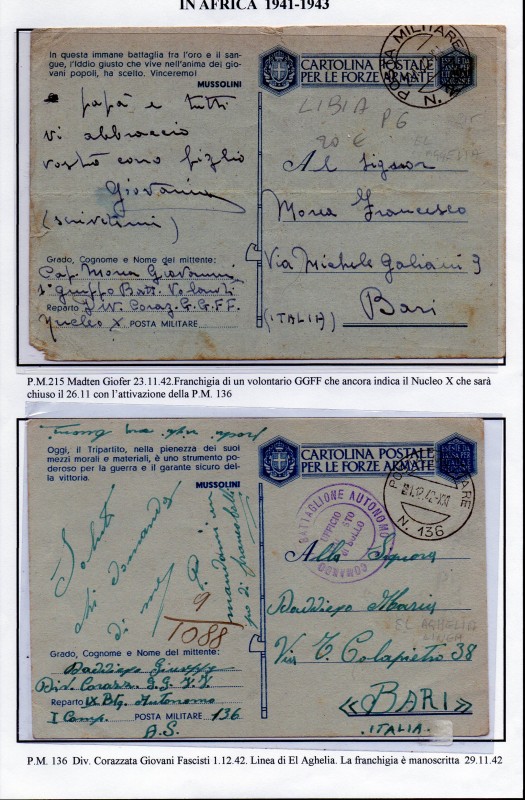 IN AFRICA 1941-1943
In questa immane battaglia tra l'oro e il san-
gue, l'Iddio giusto che vive nell'anima dei
giovani popoli, ha scelto. Vinceremo!
MUSSOLINI
papà e tutti
vi abbraccio
vostro figlio
Giovanni
(scrivetemi)
Grado, Cognome e Nome del mittente:
Cap. Morea Giovanni
1° Gruppo Batt. Volont.
Reparto Coraz. G.G.F.F.
Nucleo X POSTA MILITARE
CARTOLINA POSTALE
PER LE FORZE ARMATE
POSTA MILITARE
N.
LIBIA
P6
20 €
EL
AGHELIA
Al Signor
Morea Francesco
Via Michele Galiani 9
Bari
(ITALIA)
P.M.215 Madten Giofer 23.11.42.Franchigia di un volontario GGFF che ancora indica il Nucleo X che sarà
chiuso il 26.11 con l'attivazione della P.M. 136
Oggi, il Tripartito, nella pienezza dei suoi
mezzi morali e materiali, è uno strumento po-
deroso per la guerra e il garante sicuro del-
la vittoria.
MUSSOLINI
di
9
1088
Grado, Cognome e Nome del mittente:
Daddiego Giuseppe
Div. Corazz. G.G.F.F.
Reparto IX Btg. Autonomo
I Comp. POSTA MILITARE 136
A.S.
CARTOLINA POSTALE
PER LE FORZE ARMATE
POSTA MILITARE
N. 136
BATTAGLIONE AUTONOMO
UFFICIO
COMANDO
Alla Signora
Daddiego Maria
Via T. Colapietro 38
«BARI»
ITALIA.
EL AGHELIA
LINEA
P.M. 136 Div. Corazzata Giovani Fascisti 1.12.42. Linea di El Aghelia. La franchigia è manoscritta 29.11.42